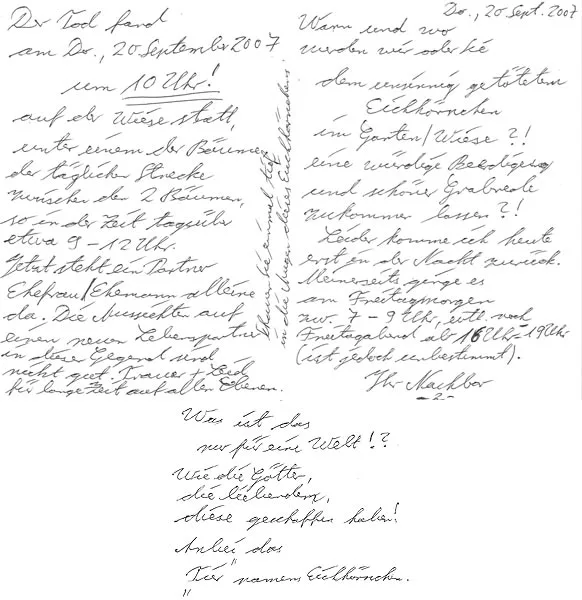 Der Tod fand
am Do., 20 September 2007
um 10 Uhr!
auf der Wiese statt,
unter einem der Bäume,
der täglichen Strecke
zwischen den 2 Bäumen,
so in der Zeit tagsüber
etwa 9 – 12 Uhr.
Jetzt steht ein Partner
Ehefrau/Ehemann alleine
da. Die Aussichten auf
einen neuen Lebenspartner
in dieser Gegend sind
nicht gut. Trauer + Leid
für lange Zeit auf allen Ebenen.
Schauen Sie einmal tief
in die Augen dieses Eichhörnchens.
Do., 20 Sept. 2007
Wann und wo
werden wir oder Sie
dem unsinnig getötetem
Eichhörnchen
im Garten/Wiese?!
eine würdige Beerdigung
und schöner Grabrede
zukommen lassen?!
Leider komme ich heute
erst in der Nacht zurück.
Meinerseits ginge es
am Freitagmorgen
zw. 7 – 9 Uhr, evtl. noch
Freitagabend ab 16 Uhr – 19 Uhr
(ist jedoch unbestimmt).
Ihr Nachbar
– 2 –
Was ist das
nur für eine Welt!?
Wie die Götter,
die liebenden,
diese geschaffen haben!
Anbei das
"Tier" namens Eichhörnchen.